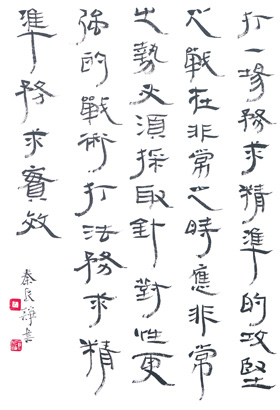 打一場務求精準的攻堅
之戰在非常之時應非常
之勢必須採取針對性更
強的戰術打法務求精
準務求實效